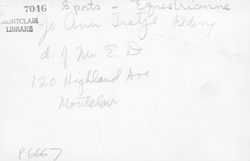 7046 Sports - Equestrienne
MONTCLAIR
LIBRARY
Jo Ann
d. of Mr. E. D
120 Highland Ave
Montclair
P6667